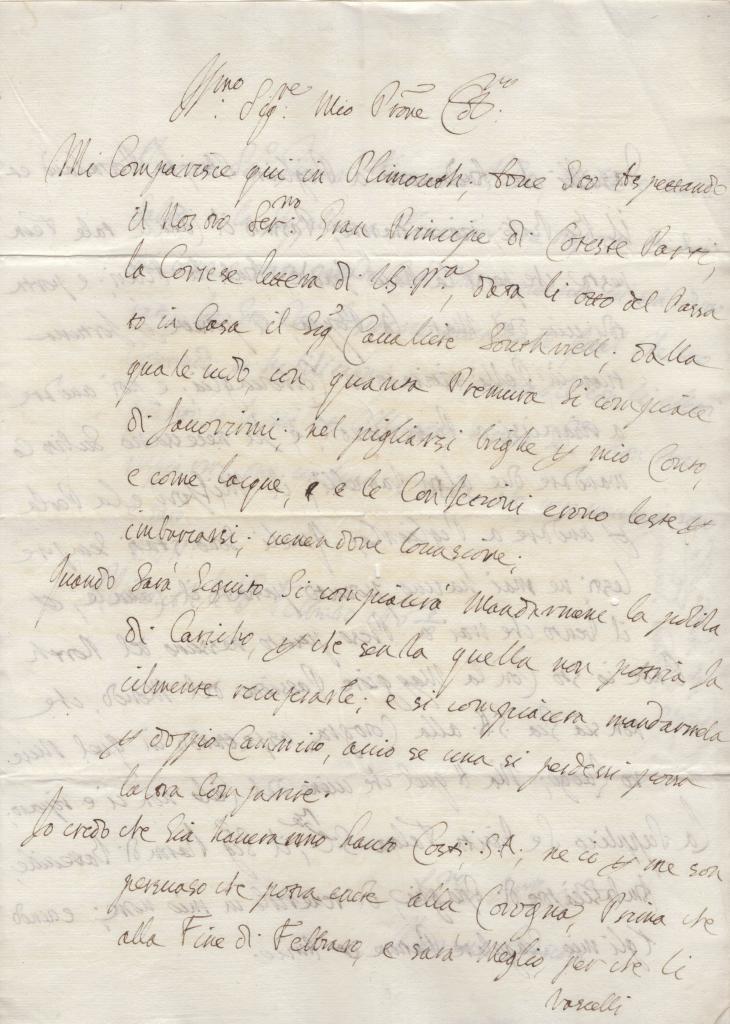 Ill.mo Sig.re Mio Prone Col.mo
Mi Comparisce qui in Plimouth, doue Sto Aspettando
il Nostro Ser.mo Gran Principe di Coteste Parti,
la Cortese lettera di VS Ill.a, data li otto del Passa
to in Casa il Sig Caualiere Southwell; dalla
quale uedo con quanta Premura Si compiace
di fauorirmi, nel pigliarsi brighe p mio Conto,
e come lacque, e le Confezioni erono leste p
imbarcarsi, uenendone loccasione;
Quando Sarà Seguito Si compiacerà Mandarmene la polita
di Caricho, p che senza quella non potria fa
cilmente recuperarle; e si compiacera mandarmela
p doppio Cammino, accio se una si perdessi possa
laltra Comparire.
Io credo che Già haueranno hauto Costi S.A., ne io p me son
persuaso che possa essere alla Corogna, Prima che
alla Fine di Febbraro, e sarà Meglio, per che li
Vascelli